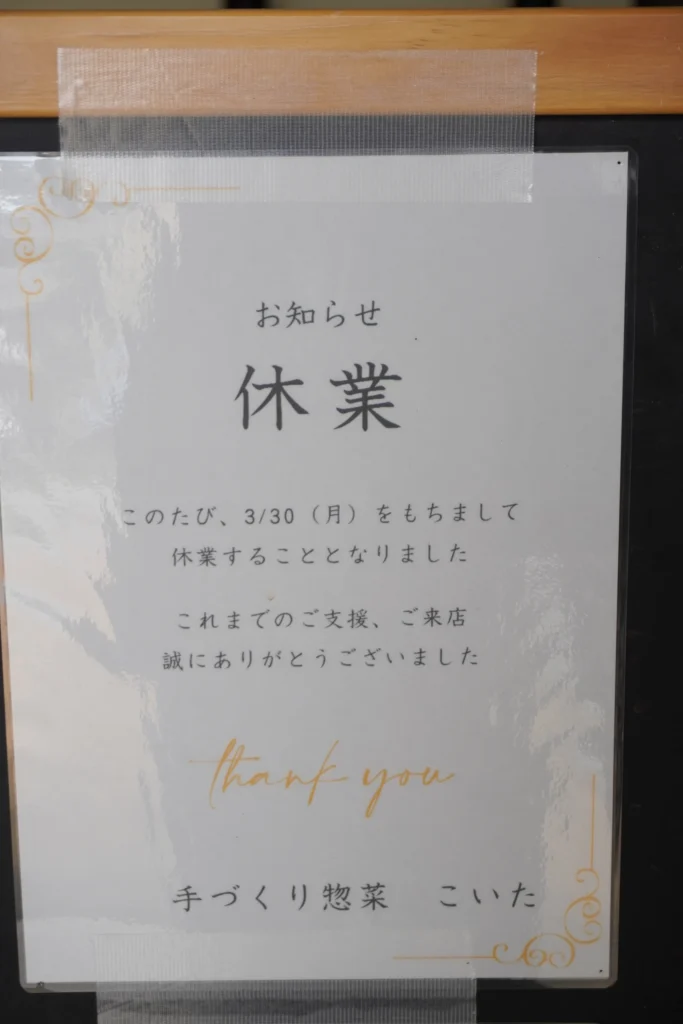 お知らせ
休業
このたび、3/30（月）をもちまして
休業することとなりました
これまでのご支援、ご来店
誠にありがとうございました
thank you
手づくり惣菜　こいた